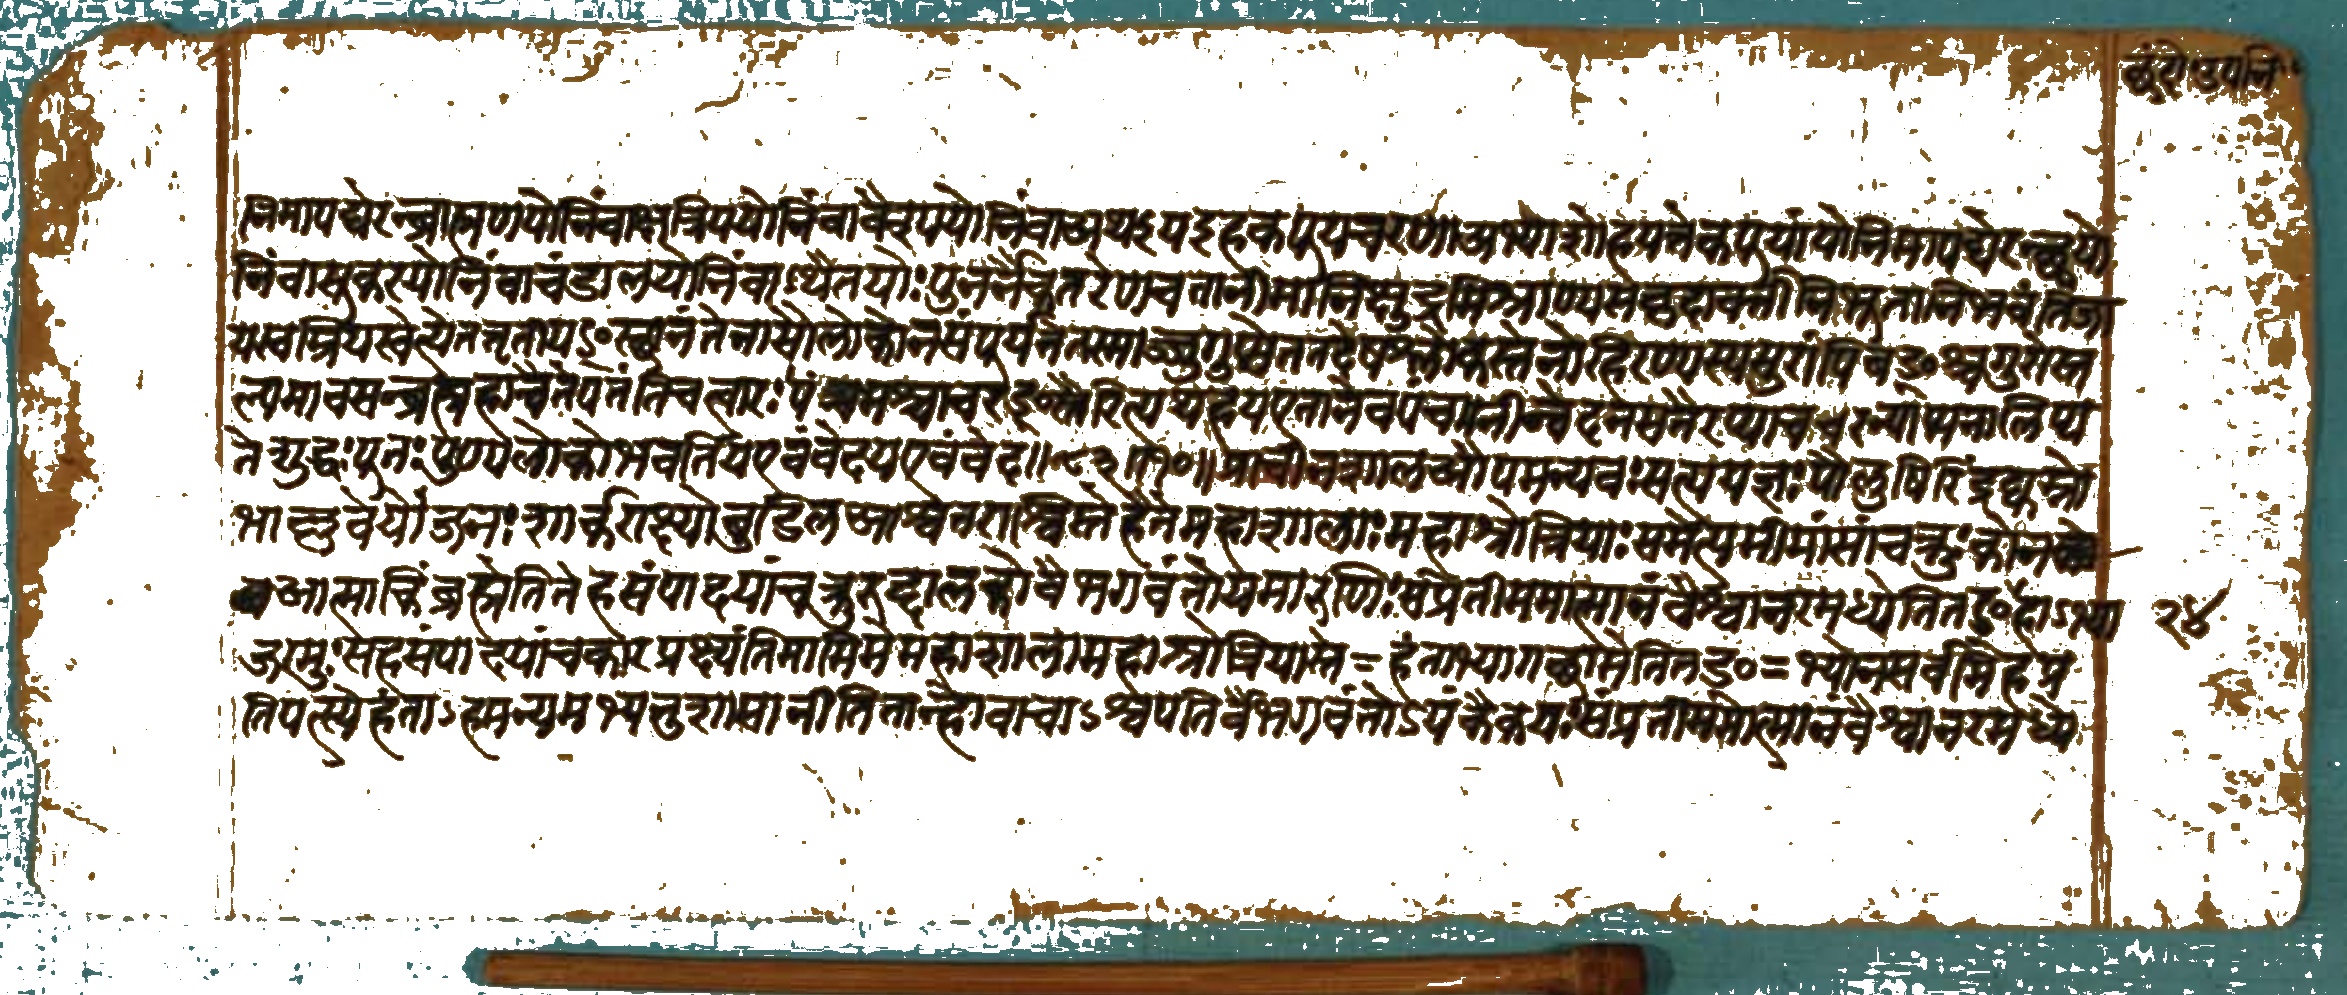 छंदो॰उपनि॰
निमापद्येरन्ब्राह्मणयोनिंवाक्षत्रिययोनिंवावैश्ययोनिंवाअथइयइहकपूयचरणाअभ्याशोहयत्तेकपूयांयोनिमापद्येरन्छ्वयो
निंवासूकरयोनिंवाचंडालयोनिंवाऽथैतयोः पुनर्नैवकृतरेणचनतानीमानिक्षुद्रमिश्राण्यसकृदावर्त्तीनिभूतानिभवंतिजा
यस्वम्रियस्वेत्येतत्तृतीयऽ॰स्छानंतेनासौलोकोनसंपूर्यतेतस्माज्जुगुप्सेततदेषश्लोकस्तेनोहिरण्यस्यसुरांपिबऽ॰श्चगुरोस्त
ल्पमावसन्ब्रह्महाचैतेपतंतिचत्वारः पंचमश्चाचरऽ॰स्तैरित्यथहयएतानेवंपंचाग्नीन्वेदनसतैरप्याचरन्पाप्मनालिप्य
तेशुद्धः पूतः पुण्यलोकोभवतियएवंवेदयएवंवेद॥॥१०॥प्राचीनशालऔपमन्यवः सत्ययज्ञः पौलुषिरिंद्रद्युम्नो
भाल्लवेयोजनः शार्कराक्ष्योबुडिलआश्वतराश्विस्तेहैतेमहाशालाः महाश्रोत्रियाः समेत्यमीमांसांचक्रुः कोन
आत्माकिंब्रह्मेतितेहसंपादयांचक्रुरुद्दालकोवैभगवंतोयमारुणिः संप्रतीममात्मानंवैश्वानरमध्येतितऽ॰हाऽभ्या २४
जग्मुः सहसंपादयांचकारप्रक्ष्यंतिमामिमेमहाशालामहाश्रोत्रियास्ते=हंताभ्यागछामेतितऽ॰=भ्योनसर्वमिहप्र
तिपत्स्येहंताऽहमन्यमभ्यनुशासानीतितान्होवाचाऽश्वपतिर्वैभगवंतोऽयंकैकयः संप्रतीममात्मानंवैश्वानरमध्ये